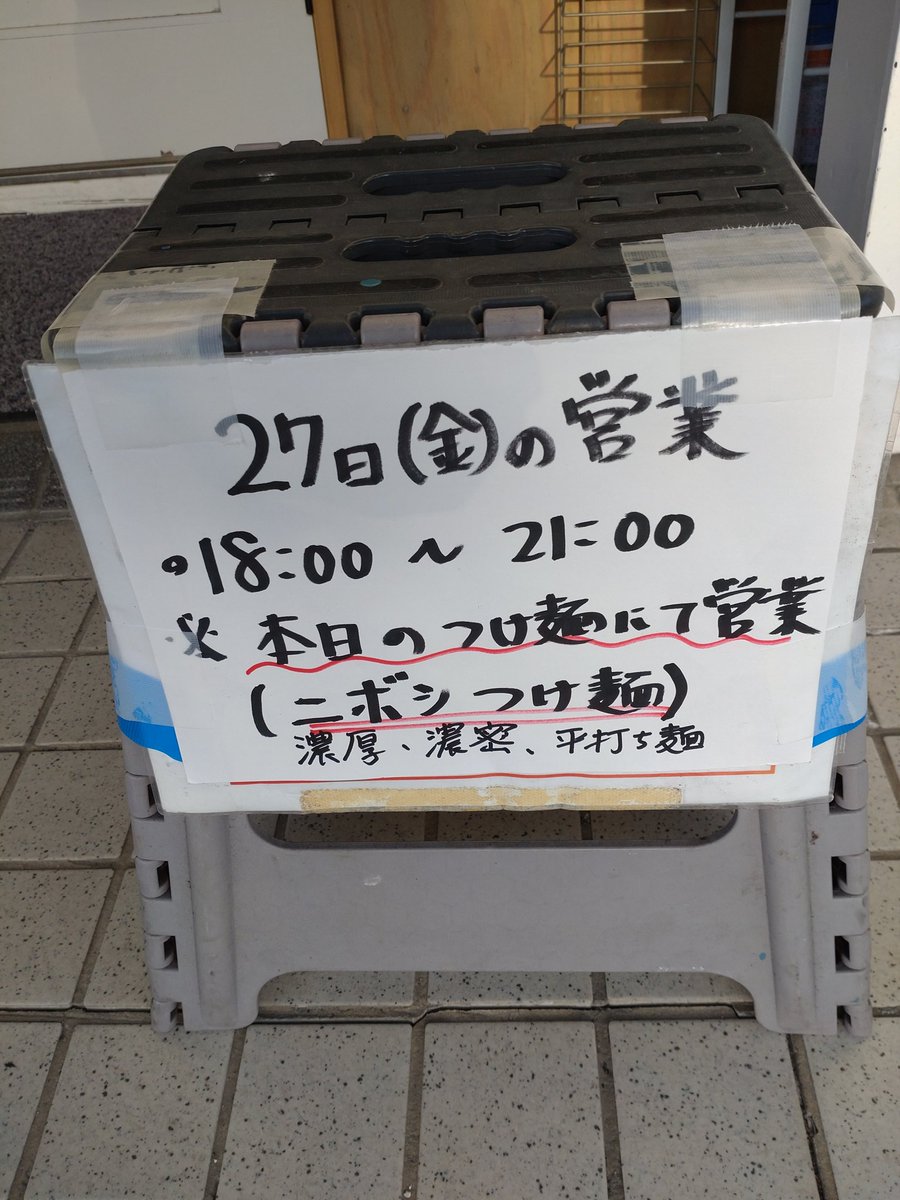 27日(金)の営業
・18:00 〜 21:00
※ 本日のつけ麺にて営業
(ニボシつけ麺)
濃厚、濃密、平打ち麺